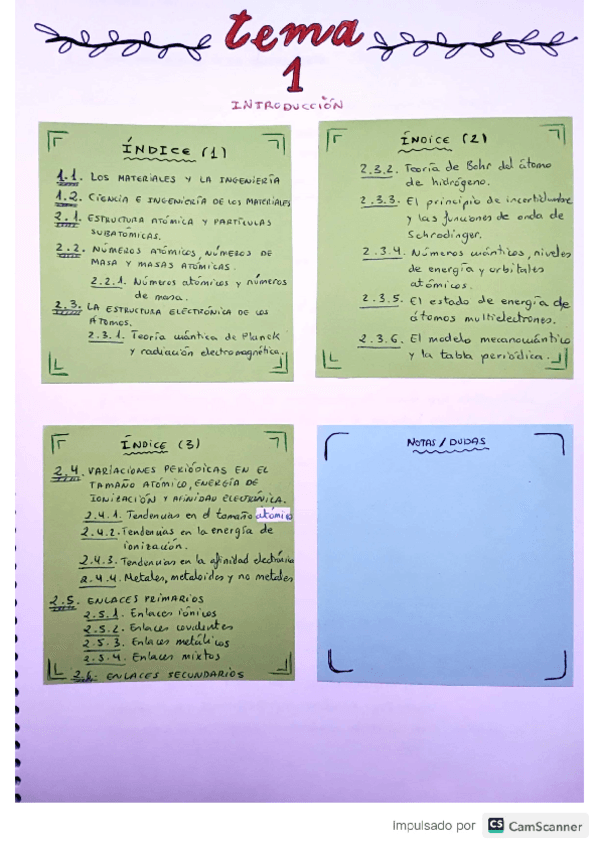 tema
1
INTRODUCCIÓN
ÍNDICE (1)
1.1. LOS MATERIALES Y LA INGENIERÍA
1.2. CIENCIA E INGENIERÍA DE LOS MATERIALES
2.1. ESTRUCTURA ATÓMICA Y PARTÍCULAS
SUBATÓMICAS.
2.2. NÚMEROS ATÓMICOS, NÚMEROS DE
MASA Y MASAS ATÓMICAS.
2.2.1. Números atómicos y números
de masa.
2.3. LA ESTRUCTURA ELECTRÓNICA DE LOS
ÁTOMOS.
2.3.1. Teoría cuántica de Planck
y radiación electromagnética.
ÍNDICE (2)
2.3.2. Teoría de Bohr del átomo
de hidrógeno.
2.3.3. El principio de incertidumbre
y las funciones de onda de
Schrodinger.
2.3.4. Números cuánticos, niveles
de energía y orbitales
atómicos.
2.3.5. El estado de energía de
átomos multielectrones.
2.3.6. El modelo mecanocuántico
y la tabla periódica.
ÍNDICE (3)
2.4. VARIACIONES PERIÓDICAS EN EL
TAMAÑO ATÓMICO, ENERGÍA DE
IONIZACIÓN Y AFINIDAD ELECTRÓNICA.
2.4.1. Tendencias en el tamaño atómico
2.4.2. Tendencias en la energía de
ionización.
2.4.3. Tendencias en la afinidad electrónica
2.4.4. Metales, metaloides y no metales
2.5. ENLACES PRIMARIOS
2.5.1. Enlaces iónicos
2.5.2. Enlaces covalentes
2.5.3. Enlaces metálicos
2.5.4. Enlaces mixtos
2.6. ENLACES SECUNDARIOS
NOTAS / DUDAS
Impulsado por CS CamScanner